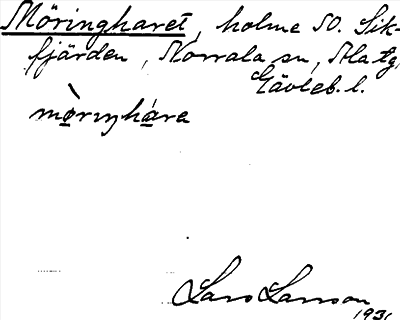 Möringharet, holme SO. Sik-
fjärden, Norrala sn, Ala tg,
Gävleb. l.
mö̀riŋhá̱re
Lars Larsson
1931